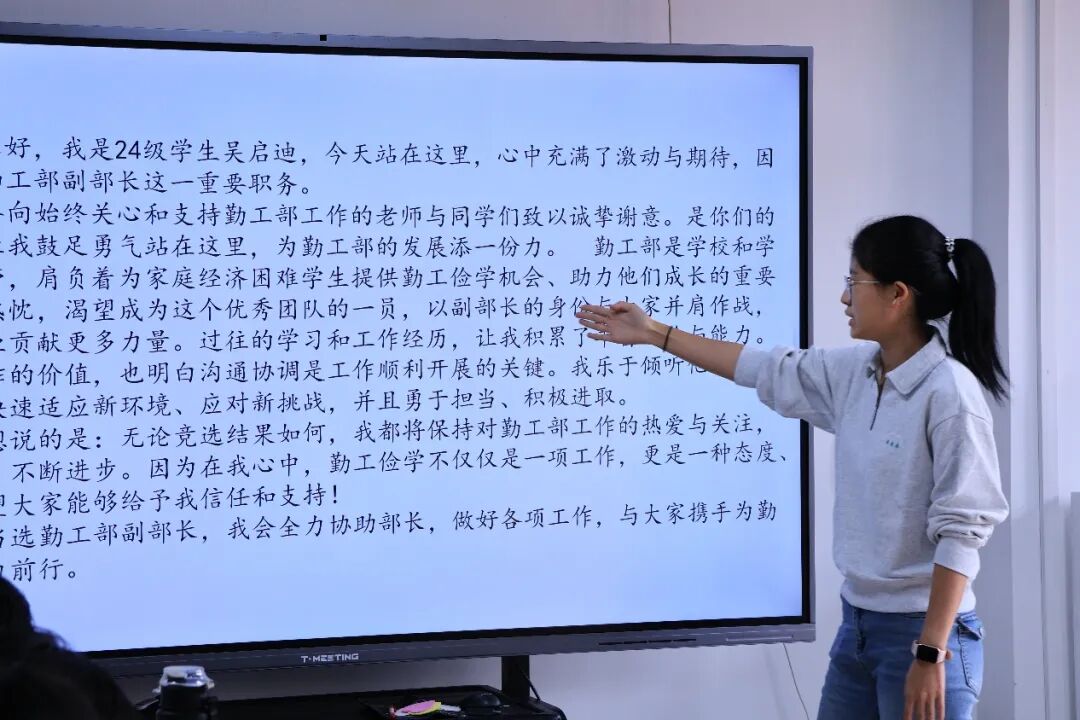 好，我是24级学生吴启迪，今天站在这里，心中充满了激动与期待，因
工部副部长这一重要职务。
向始终关心和支持勤工部工作的老师与同学们致以诚挚谢意。是你们的
我鼓足勇气站在这里，为勤工部的发展添一份力。 勤工部是学校和学
，肩负着为家庭经济困难学生提供勤工俭学机会、助力他们成长的重要
忱，渴望成为这个优秀团队的一员，以副部长的身份与大家并肩作战，
贡献更多力量。过往的学习和工作经历，让我积累了 与能力。
的价值，也明白沟通协调是工作顺利开展的关键。我乐于倾听
速适应新环境、应对新挑战，并且勇于担当、积极进取。
想说的是：无论竞选结果如何，我都将保持对勤工部工作的热爱与关注，
，不断进步。因为在我心中，勤工俭学不仅仅是一项工作，更是一种态度、
望大家能够给予我信任和支持！
当选勤工部副部长，我会全力协助部长，做好各项工作，与大家携手为勤
前行。
T-MEETING